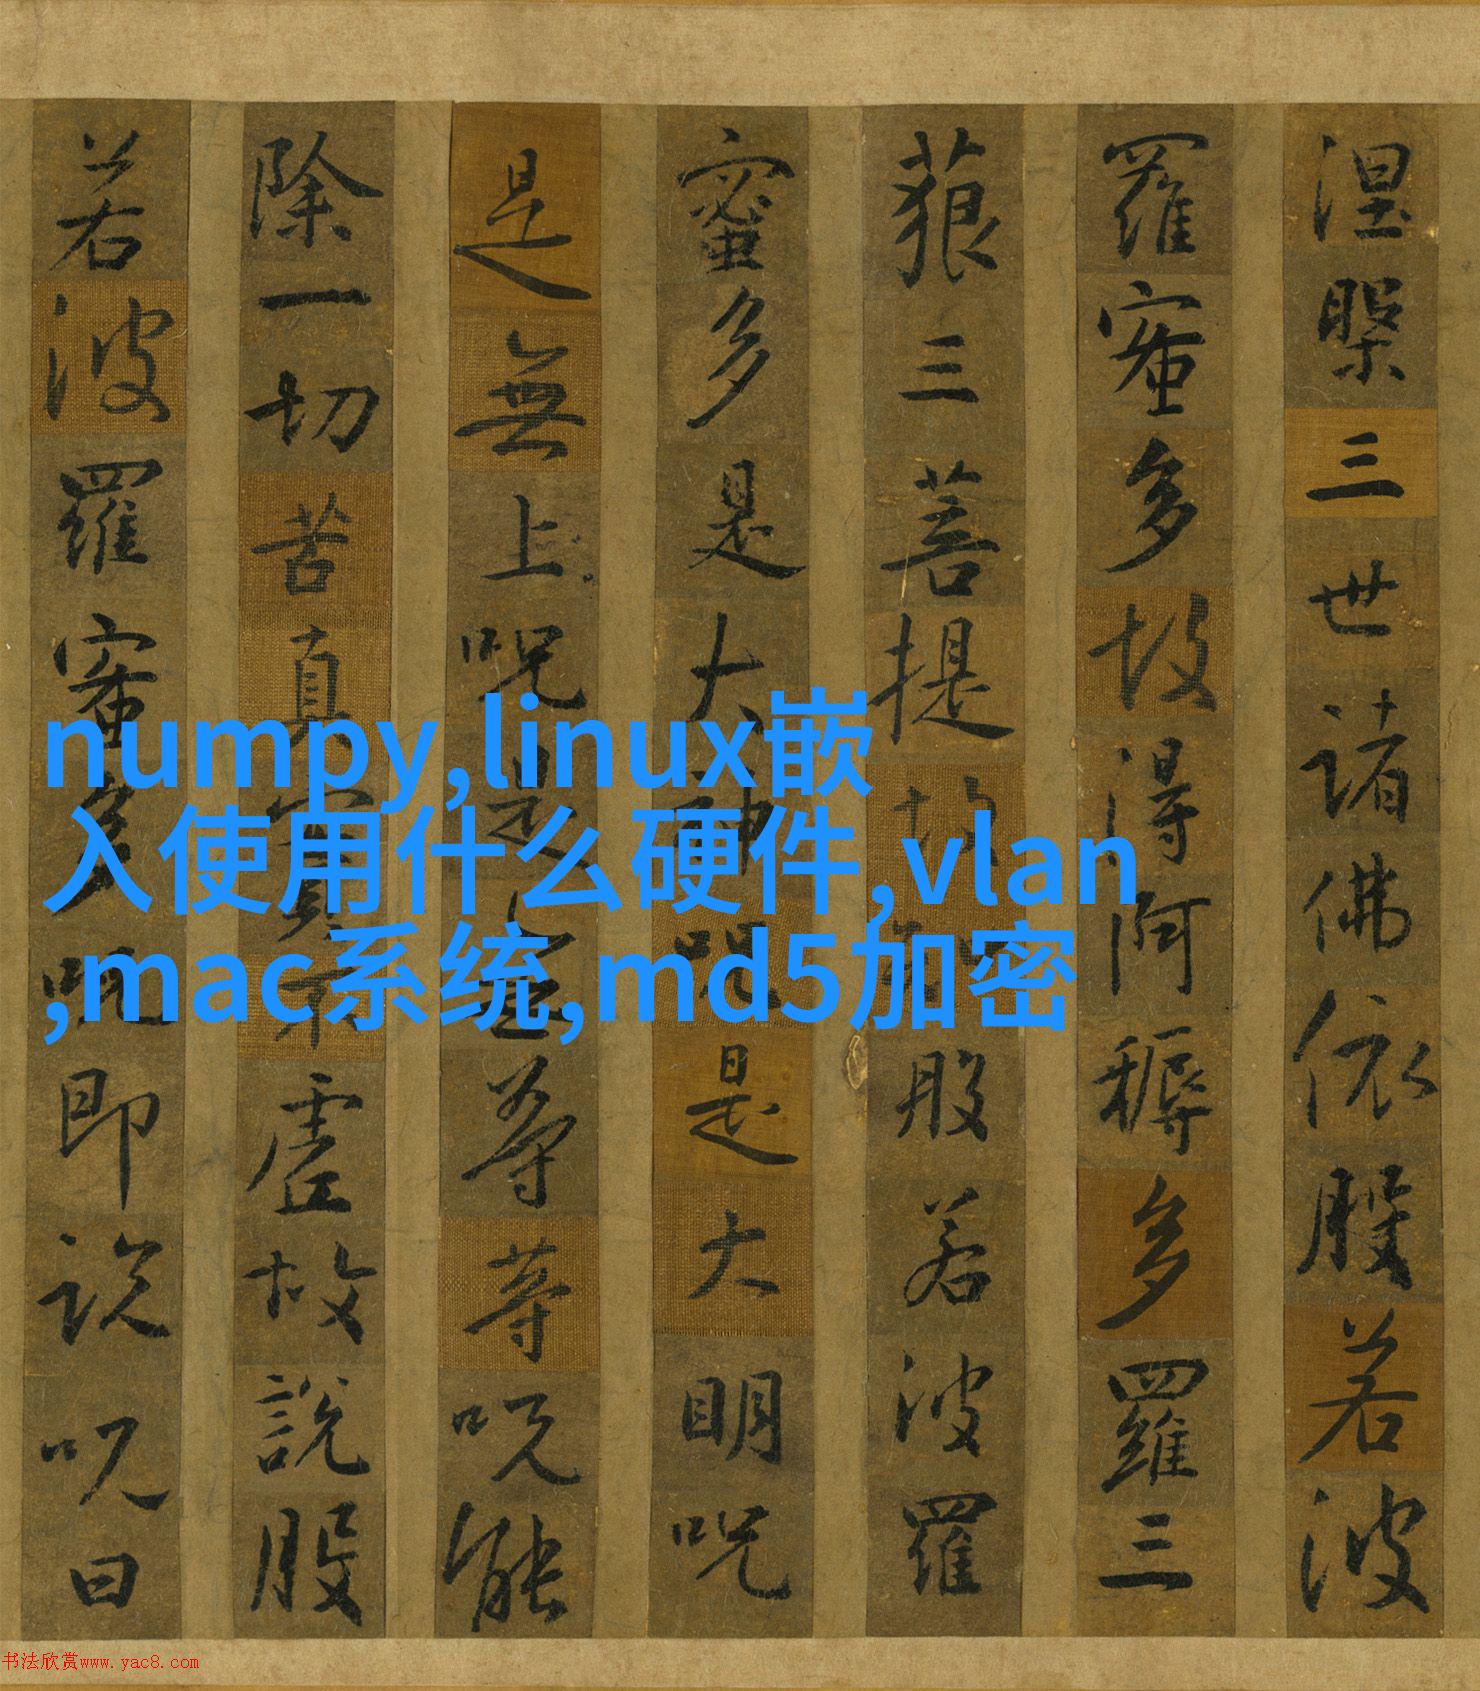 涅槃三世諸佛依般若波
羅蜜多故得阿耨多羅三
藐三菩提故知般若波羅
蜜多是大神呪是大明呪
是無上呪是等等呪能
除一切苦真實不虛故說般
若波羅蜜多呪即說呪曰
numpy,linux嵌
入使用什么硬件,vlan
,mac系统,md5加密
书法欣赏www.yac8.com